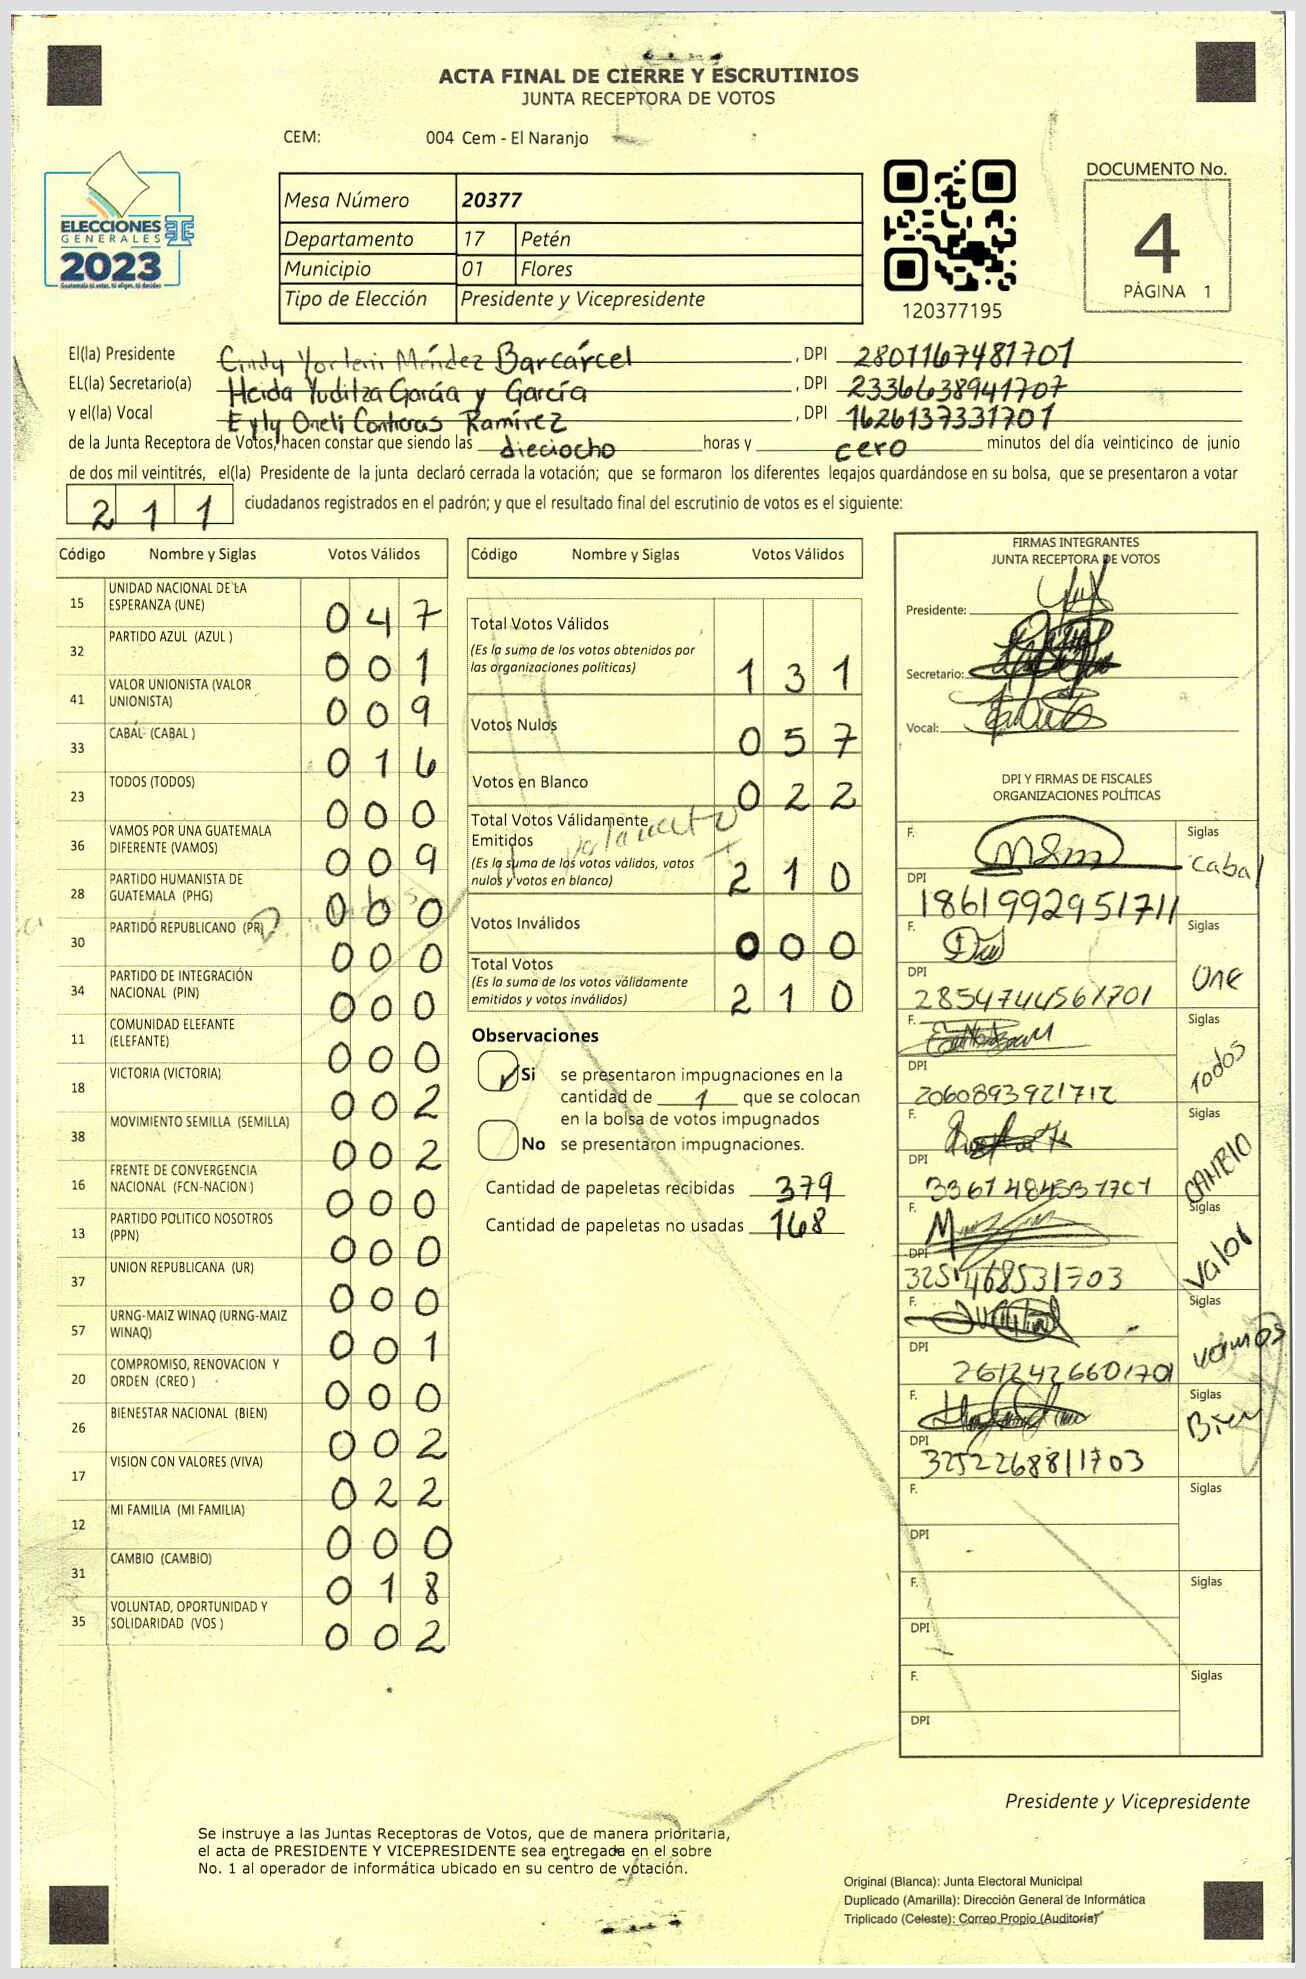 ACTA FINAL DE CIERRE Y ESCRUTINIOS
JUNTA RECEPTORA DE VOTOS
CEM: 004 Cem - El Naranjo
ELECCIONES
GENERALES
2023
Guatemala tú votas, tú eliges, tú decides
Mesa Número 20377
Departamento 17 Petén
Municipio 01 Flores
Tipo de Elección Presidente y Vicepresidente
120377195
DOCUMENTO No.
4
PÁGINA 1
El(la) Presidente Cindy Méndez Barcárcel, DPI 2801167481701
EL(la) Secretario(a) Heida Yuditza García y García, DPI 2336638941707
y el(la) Vocal Eyly Oneli Contreras Ramírez, DPI 1626137331701
de la Junta Receptora de Votos, hacen constar que siendo las dieciocho horas y cero minutos del día veinticinco de junio
de dos mil veintitrés, el(la) Presidente de la junta declaró cerrada la votación; que se formaron los diferentes legajos quardándose en su bolsa, que se presentaron a votar
211 ciudadanos registrados en el padrón; y que el resultado final del escrutinio de votos es el siguiente:
Código Nombre y Siglas Votos Válidos
15 UNIDAD NACIONAL DE LA ESPERANZA (UNE) 047
32 PARTIDO AZUL (AZUL ) 001
41 VALOR UNIONISTA (VALOR UNIONISTA) 009
33 CABAL (CABAL ) 016
23 TODOS (TODOS) 000
36 VAMOS POR UNA GUATEMALA DIFERENTE (VAMOS) 009
28 PARTIDO HUMANISTA DE GUATEMALA (PHG) 000
30 PARTIDO REPUBLICANO (PR) 000
34 PARTIDO DE INTEGRACIÓN NACIONAL (PIN) 000
11 COMUNIDAD ELEFANTE (ELEFANTE) 000
18 VICTORIA (VICTORIA) 002
38 MOVIMIENTO SEMILLA (SEMILLA) 002
16 FRENTE DE CONVERGENCIA NACIONAL (FCN-NACION ) 000
13 PARTIDO POLITICO NOSOTROS (PPN) 000
37 UNION REPUBLICANA (UR) 000
57 URNG-MAIZ WINAQ (URNG-MAIZ WINAQ) 001
20 COMPROMISO, RENOVACION Y ORDEN (CREO ) 000
26 BIENESTAR NACIONAL (BIEN) 002
17 VISION CON VALORES (VIVA) 022
12 MI FAMILIA (MI FAMILIA) 000
31 CAMBIO (CAMBIO) 018
35 VOLUNTAD, OPORTUNIDAD Y SOLIDARIDAD (VOS ) 002
Código Nombre y Siglas Votos Válidos
Total Votos Válidos
(Es la suma de los votos obtenidos por
las organizaciones políticas) 131
Votos Nulos 057
Votos en Blanco 022
Total Votos Válidamente
Emitidos
(Es la suma de los votos válidos, votos
nulos y votos en blanco) 210
Votos Inválidos 000
Total Votos
(Es la suma de los votos válidamente
emitidos y votos inválidos) 210
Observaciones
Si se presentaron impugnaciones en la
cantidad de 1 que se colocan
en la bolsa de votos impugnados
No se presentaron impugnaciones.
Cantidad de papeletas recibidas 379
Cantidad de papeletas no usadas 168
FIRMAS INTEGRANTES
JUNTA RECEPTORA DE VOTOS
Presidente:
Secretario:
Vocal:
DPI Y FIRMAS DE FISCALES
ORGANIZACIONES POLÍTICAS
F. Siglas Cabal
DPI 1861992951711
F. Siglas One
DPI 2854744561701
F. Siglas Todos
DPI 2060893921712
F. Siglas CAMBIO
DPI 3361484531701
F. Siglas Valor
DPI 3251468531703
F. Siglas vamos
DPI 2612426601701
F. Siglas Bien
DPI 3252268811703
F. Siglas
DPI
F. Siglas
DPI
F. Siglas
DPI
Presidente y Vicepresidente
Se instruye a las Juntas Receptoras de Votos, que de manera prioritaria,
el acta de PRESIDENTE Y VICEPRESIDENTE sea entregada en el sobre
No. 1 al operador de informática ubicado en su centro de votación.
Original (Blanca): Junta Electoral Municipal
Duplicado (Amarilla): Dirección General de Informática
Triplicado (Celeste): Correo Propio (Auditoría)